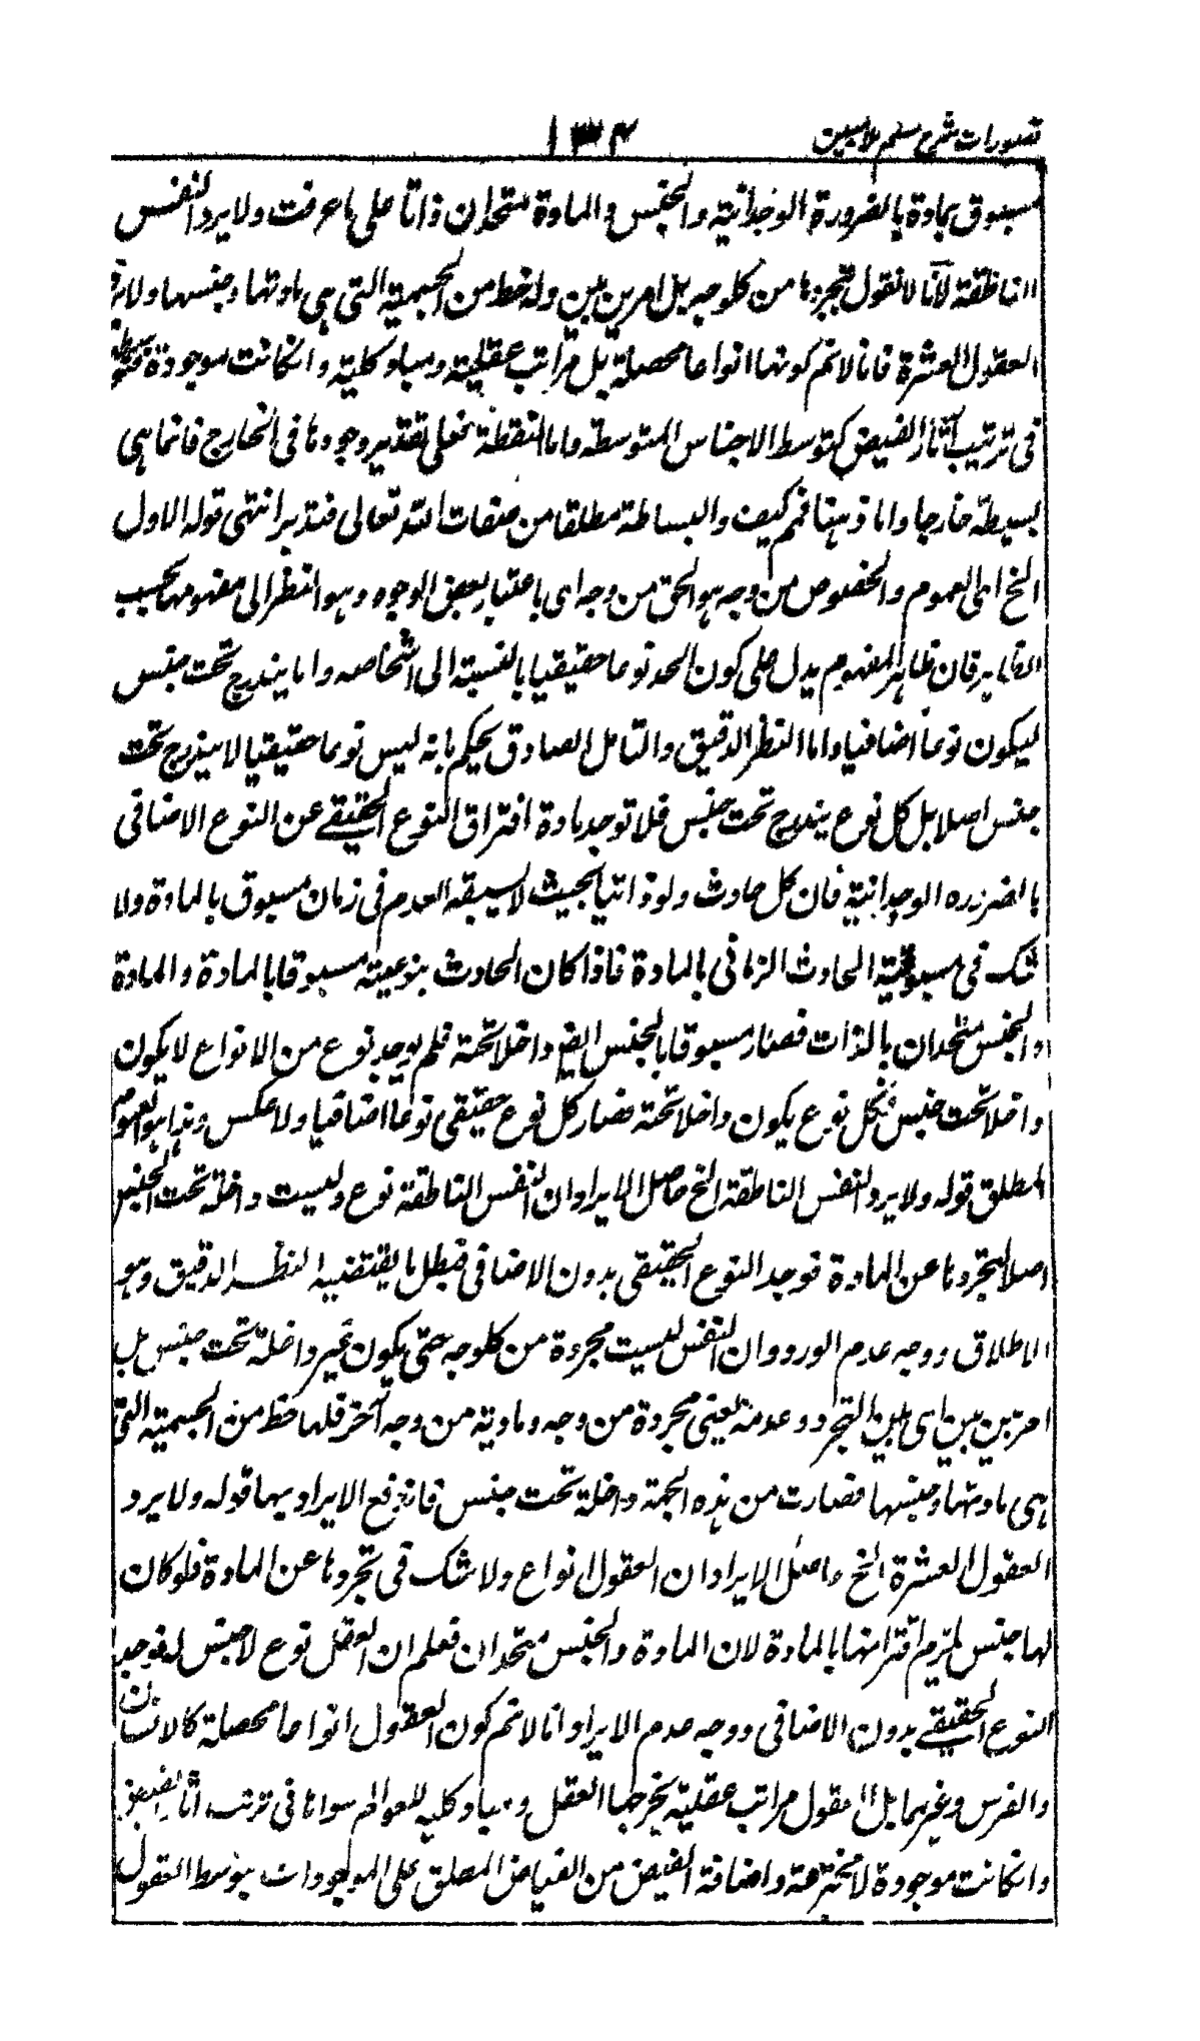 تصورات شرح سلم ملامبین
۱۳۴
مسبوق بمادة بالضرورة الوجدانية والجنس والمادة متحدان ذاتا على ما عرفت ولا يرد النفس
الناطقة لانا لا نقول بتجردها من كل وجه بل امر بين بين وله حظ من الجسمية التي هي مادتها وجنسها ولا يرد
العقول العشرة فانا لا نم كونها انواعا محصلة بل مراتب عقلية ومباد كلية وانكانت موجودة متوسطة
في ترتيب آثار الفيض كتوسط الاجناس المتوسطة واما النقطة فعلى تقدير وجودها في الخارج فانما هي
بسيطة خارجا واما ذهنا فنم كيف والبساطة مطلقا من صفات الله تعالى فتدبر انتهى قوله الاول
الخ اى العموم والخصوص من وجه هو الحق من وجه اى باعتبار بعض الوجوه وهو النظر الى مفهومها بحسب
الظاهر فان ظاهر المفهوم يدل على كون الحد نوعا حقيقيا بالنسبة الى اشخاصه واما يندرج تحت جنس
ليكون نوعا اضافيا واما النظر الدقيق والتامل الصادق يحكم بانه ليس نوعا حقيقيا لا يندرج تحت
جنس اصلا بل كل نوع يندرج تحت جنس فلا توجد مادة افتراق النوع الحقيقے عن النوع الاضافى
بالضروره الوجدانية فان كل حادث ولو ذاتيا بحيث لا يسبقه العدم فى زمان مسبوق بالمادة ولا
شك فى مسبوقية الحادث الزمانى بالمادة فاذا كان الحادث بنوعيته مسبوقا بالمادة والمادة
والجنس متحدان بالذات فصار مسبوقا بالجنس ايض داخلا تحته فلم يوجد نوع من الانواع لا يكون
داخلا تحت جنس فكل نوع يكون داخلا تحته فصار كل نوع حقيقى نوعا اضافيا ولا عكس وهذا هو العموم
المطلق قوله ولا يرد النفس الناطقة الخ حاصل الايراد ان النفس الناطقة نوع وليست داخلة تحت الجنس
اصلا لتجردها عن المادة فوجد النوع الحقيقى بدون الاضافى فبطل ما يقتضيه النظر الدقيق وهو
الاطلاق ووجه عدم الورود ان النفس ليست مجردة من كل وجه حتى يكون غير داخلة تحت جنس بل
امر بين بين اى بين التجرد وعدمه يعنى مجردة من وجه ومادية من وجه آخر فلها حظ من الجسمية التى
هى مادتها وجنسها فصارت من هذه الجهة داخلة تحت جنس فاندفع الايراد بها قوله ولا يرد
العقول العشرة الخ حاصل الايراد ان العقول انواع ولا شك فى تجردها عن المادة فلو كان
لها جنس يلزم اقترانها بالمادة لان المادة والجنس متحدان فعلم ان العقل نوع لا جنس له فوجد
النوع الحقيقے بدون الاضافى ووجه عدم الايراد انا لا نم كون العقول انواعا محصلة كالانسان
والفرس وغيرهما بل العقول مراتب عقلية يخرجها العقل ومباد كلية للعوالم سواها فى ترتيب آثار الفيض
وانكانت موجودة لا مخترعة واضافة الفيض من الفياض المطلق على الموجودات بتوسط العقول